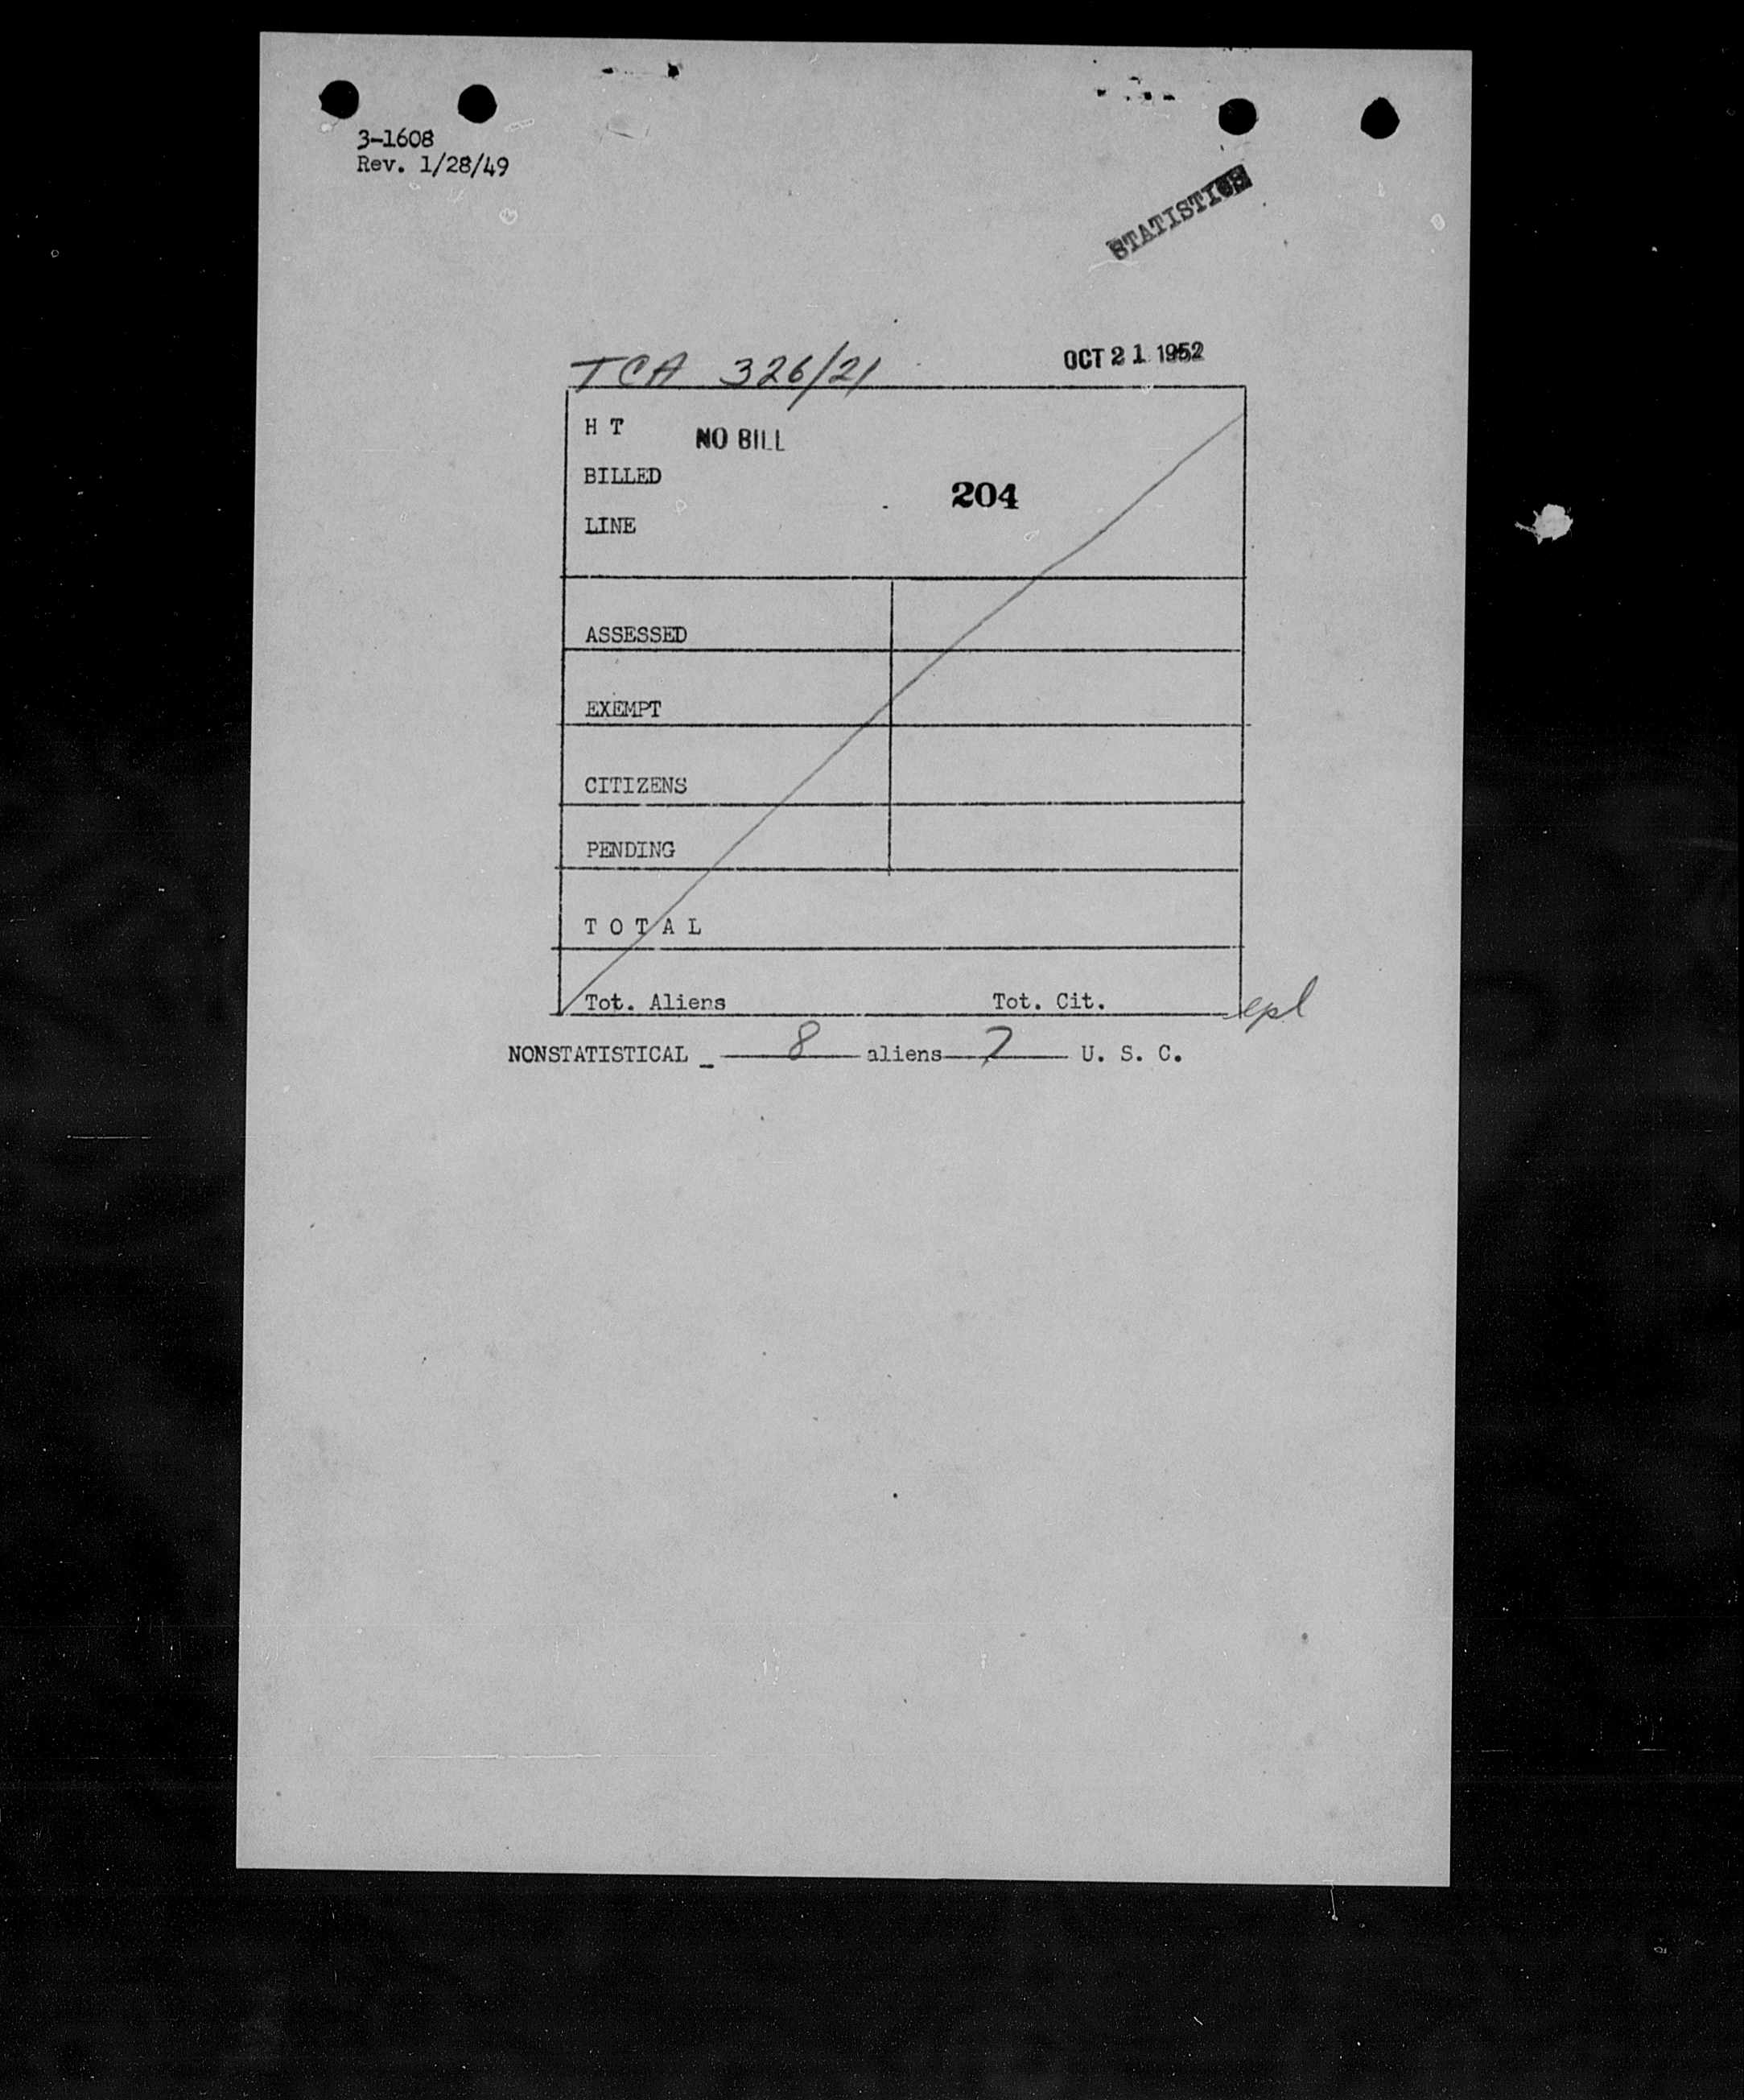 3-1608
Rev. 1/28/49
STATISTICS
TCA 326/21 OCT 21 1952
H T NO BILL
BILLED
204
LINE
ASSESSED
EXEMPT
CITIZENS
PENDING
T O T A L
Tot. Aliens Tot. Cit. epl
NONSTATISTICAL - 8 aliens 7 U. S. C.